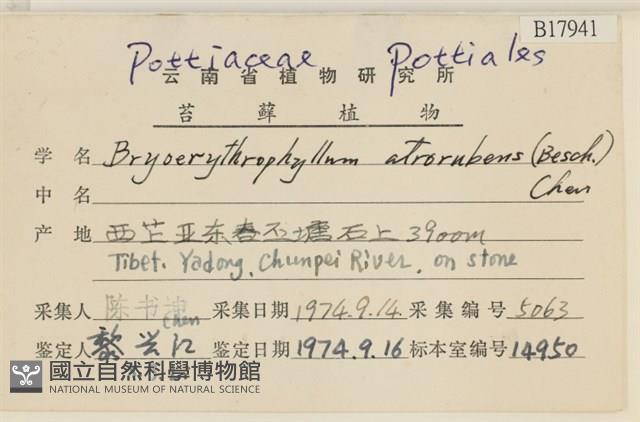 B17941
Pottiaceae Pottiales
云南省植物研究所
苔藓植物
学名 Bryoerythrophyllum atrorubens (Besch.)
Chen
中名
产地 西芷亚东春石塘石上 3900m
Tibet. Yadong, Chunpei River, on stone
采集人 陈书 采集日期 1974.9.14. 采集编号 5063
Chen
鉴定人 黎兴江 鉴定日期 1974.9.16 标本室编号 14950
國立自然科學博物館
NATIONAL MUSEUM OF NATURAL SCIENCE